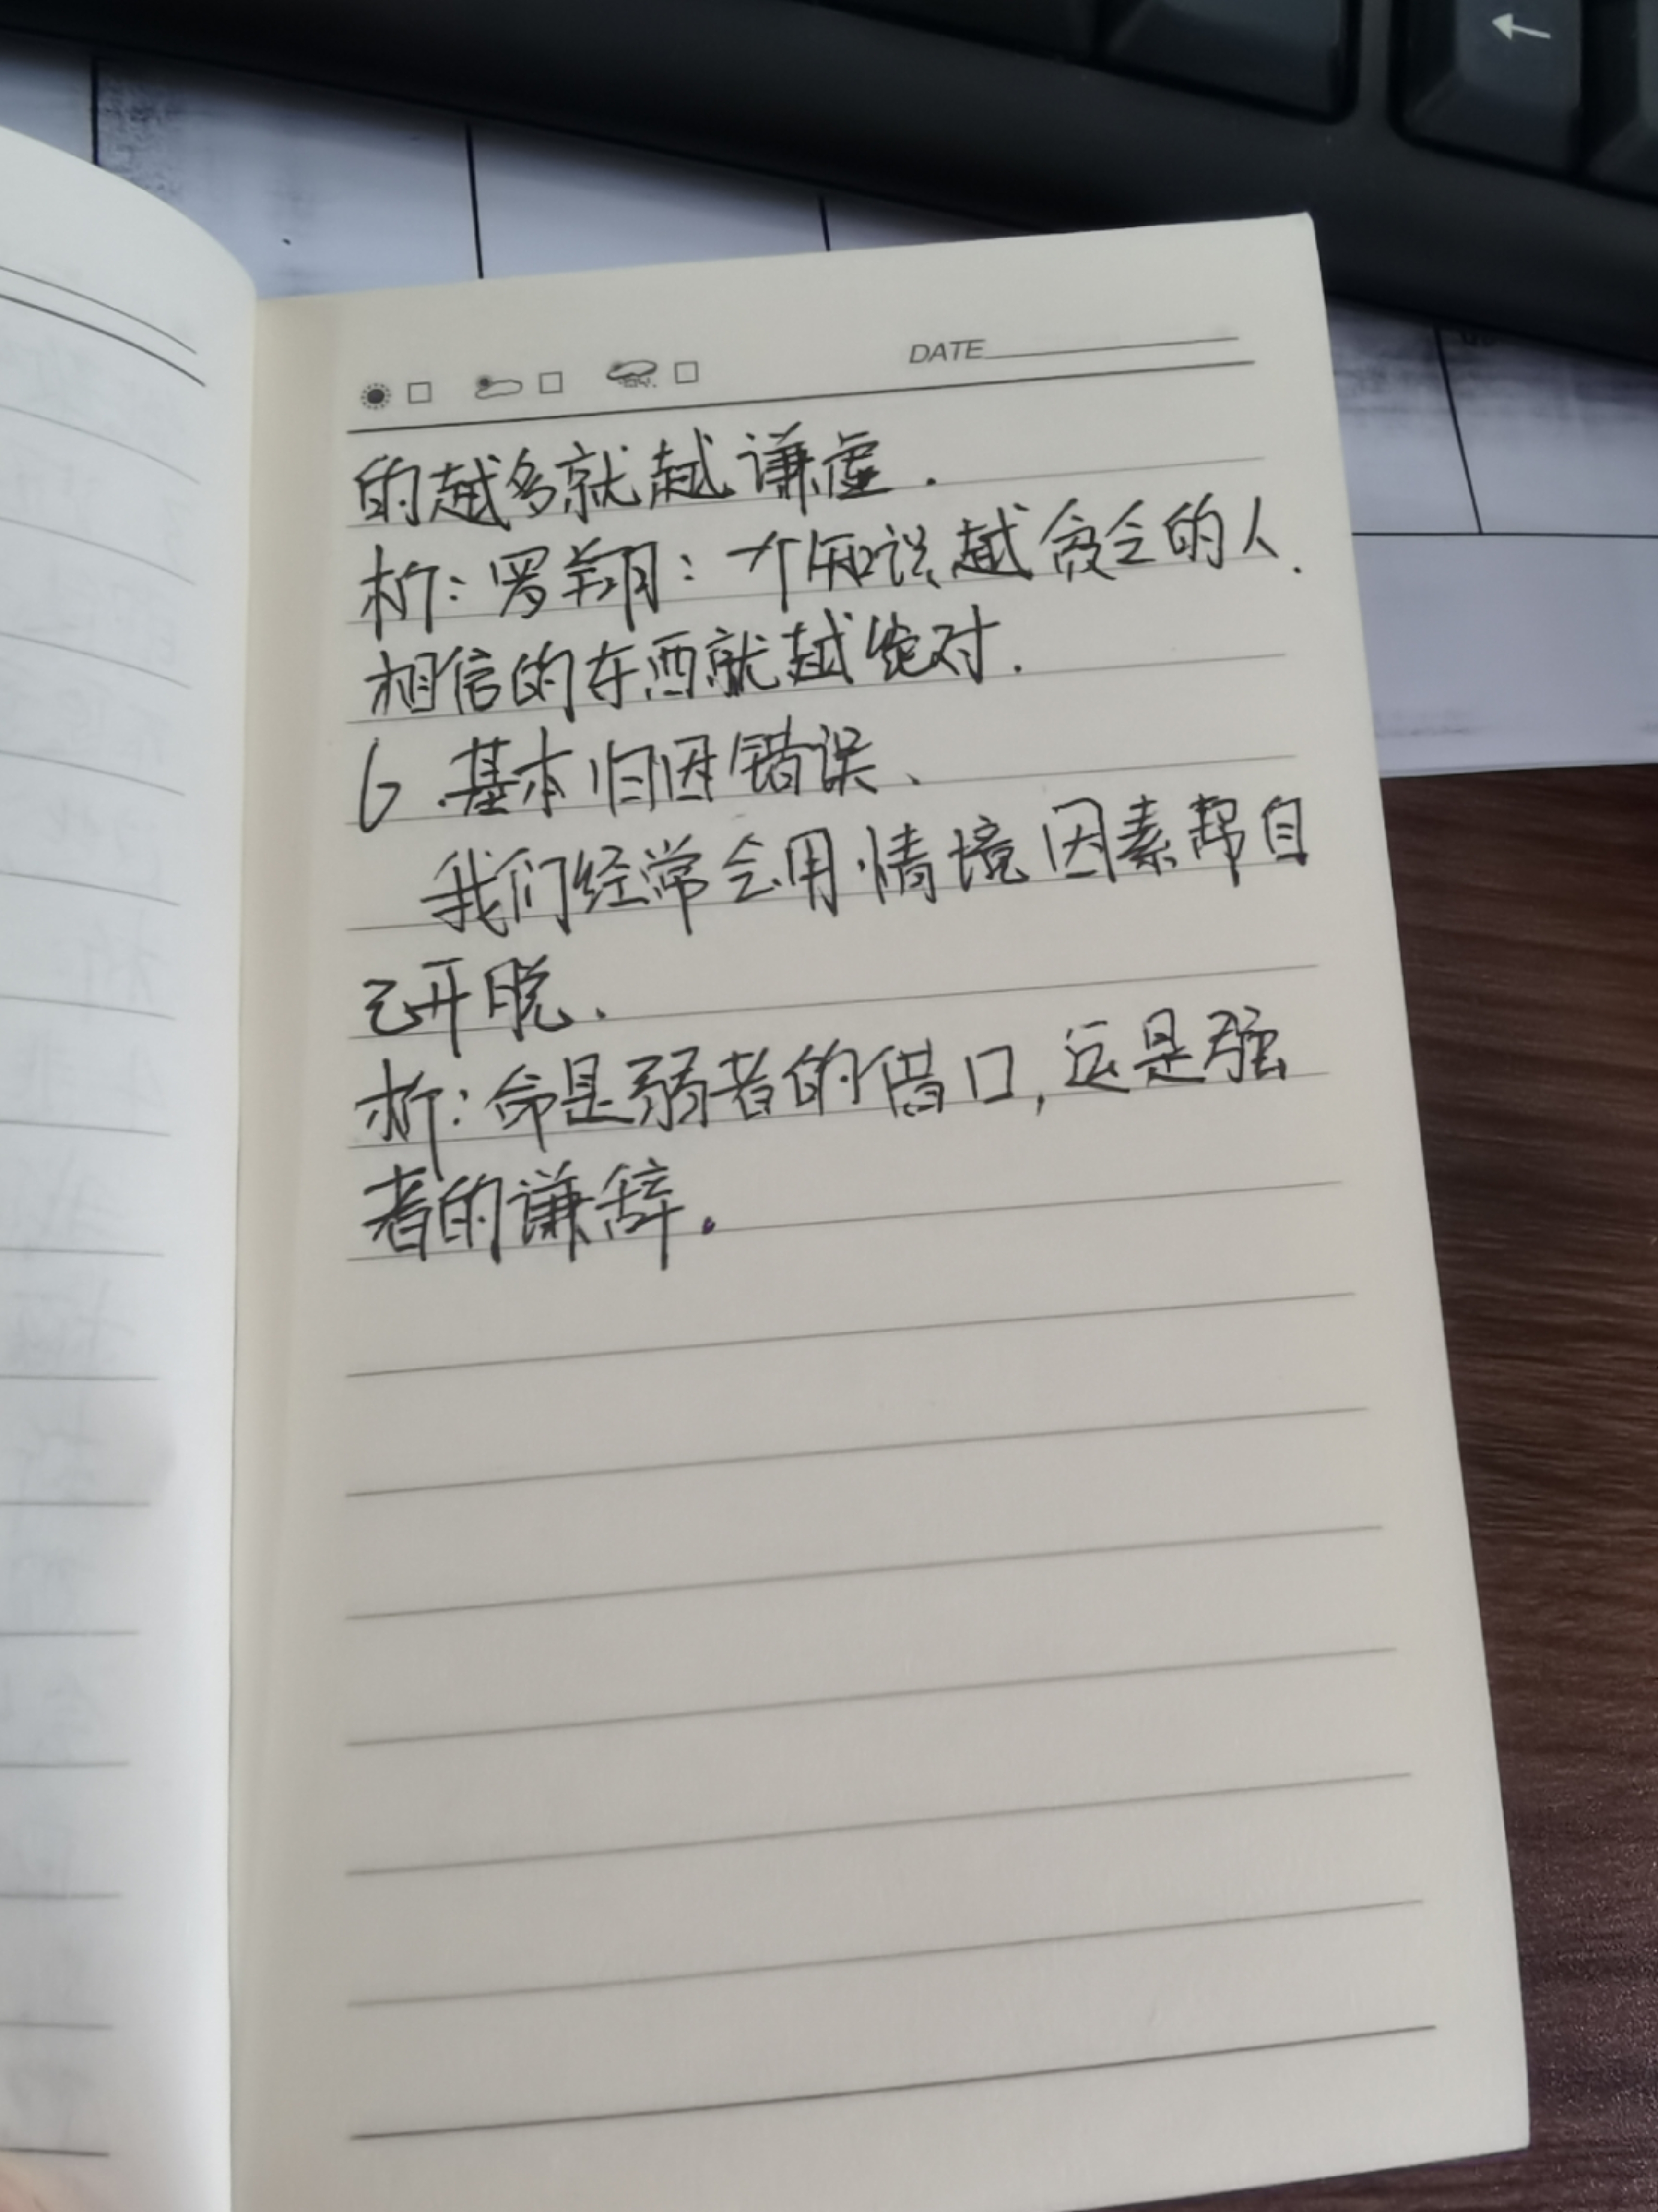 DATE
的越多就越谦虚.
析:罗翔:一个知识越贫乏的人.
相信的东西就越绝对.
6.基本归因错误、
我们经常会用情境因素帮自
己开脱.
析:命是弱者的借口,运是强
者的谦辞.